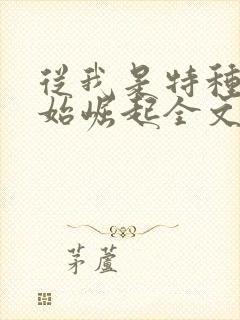 從我是特種
始崛起全文
茅蘆